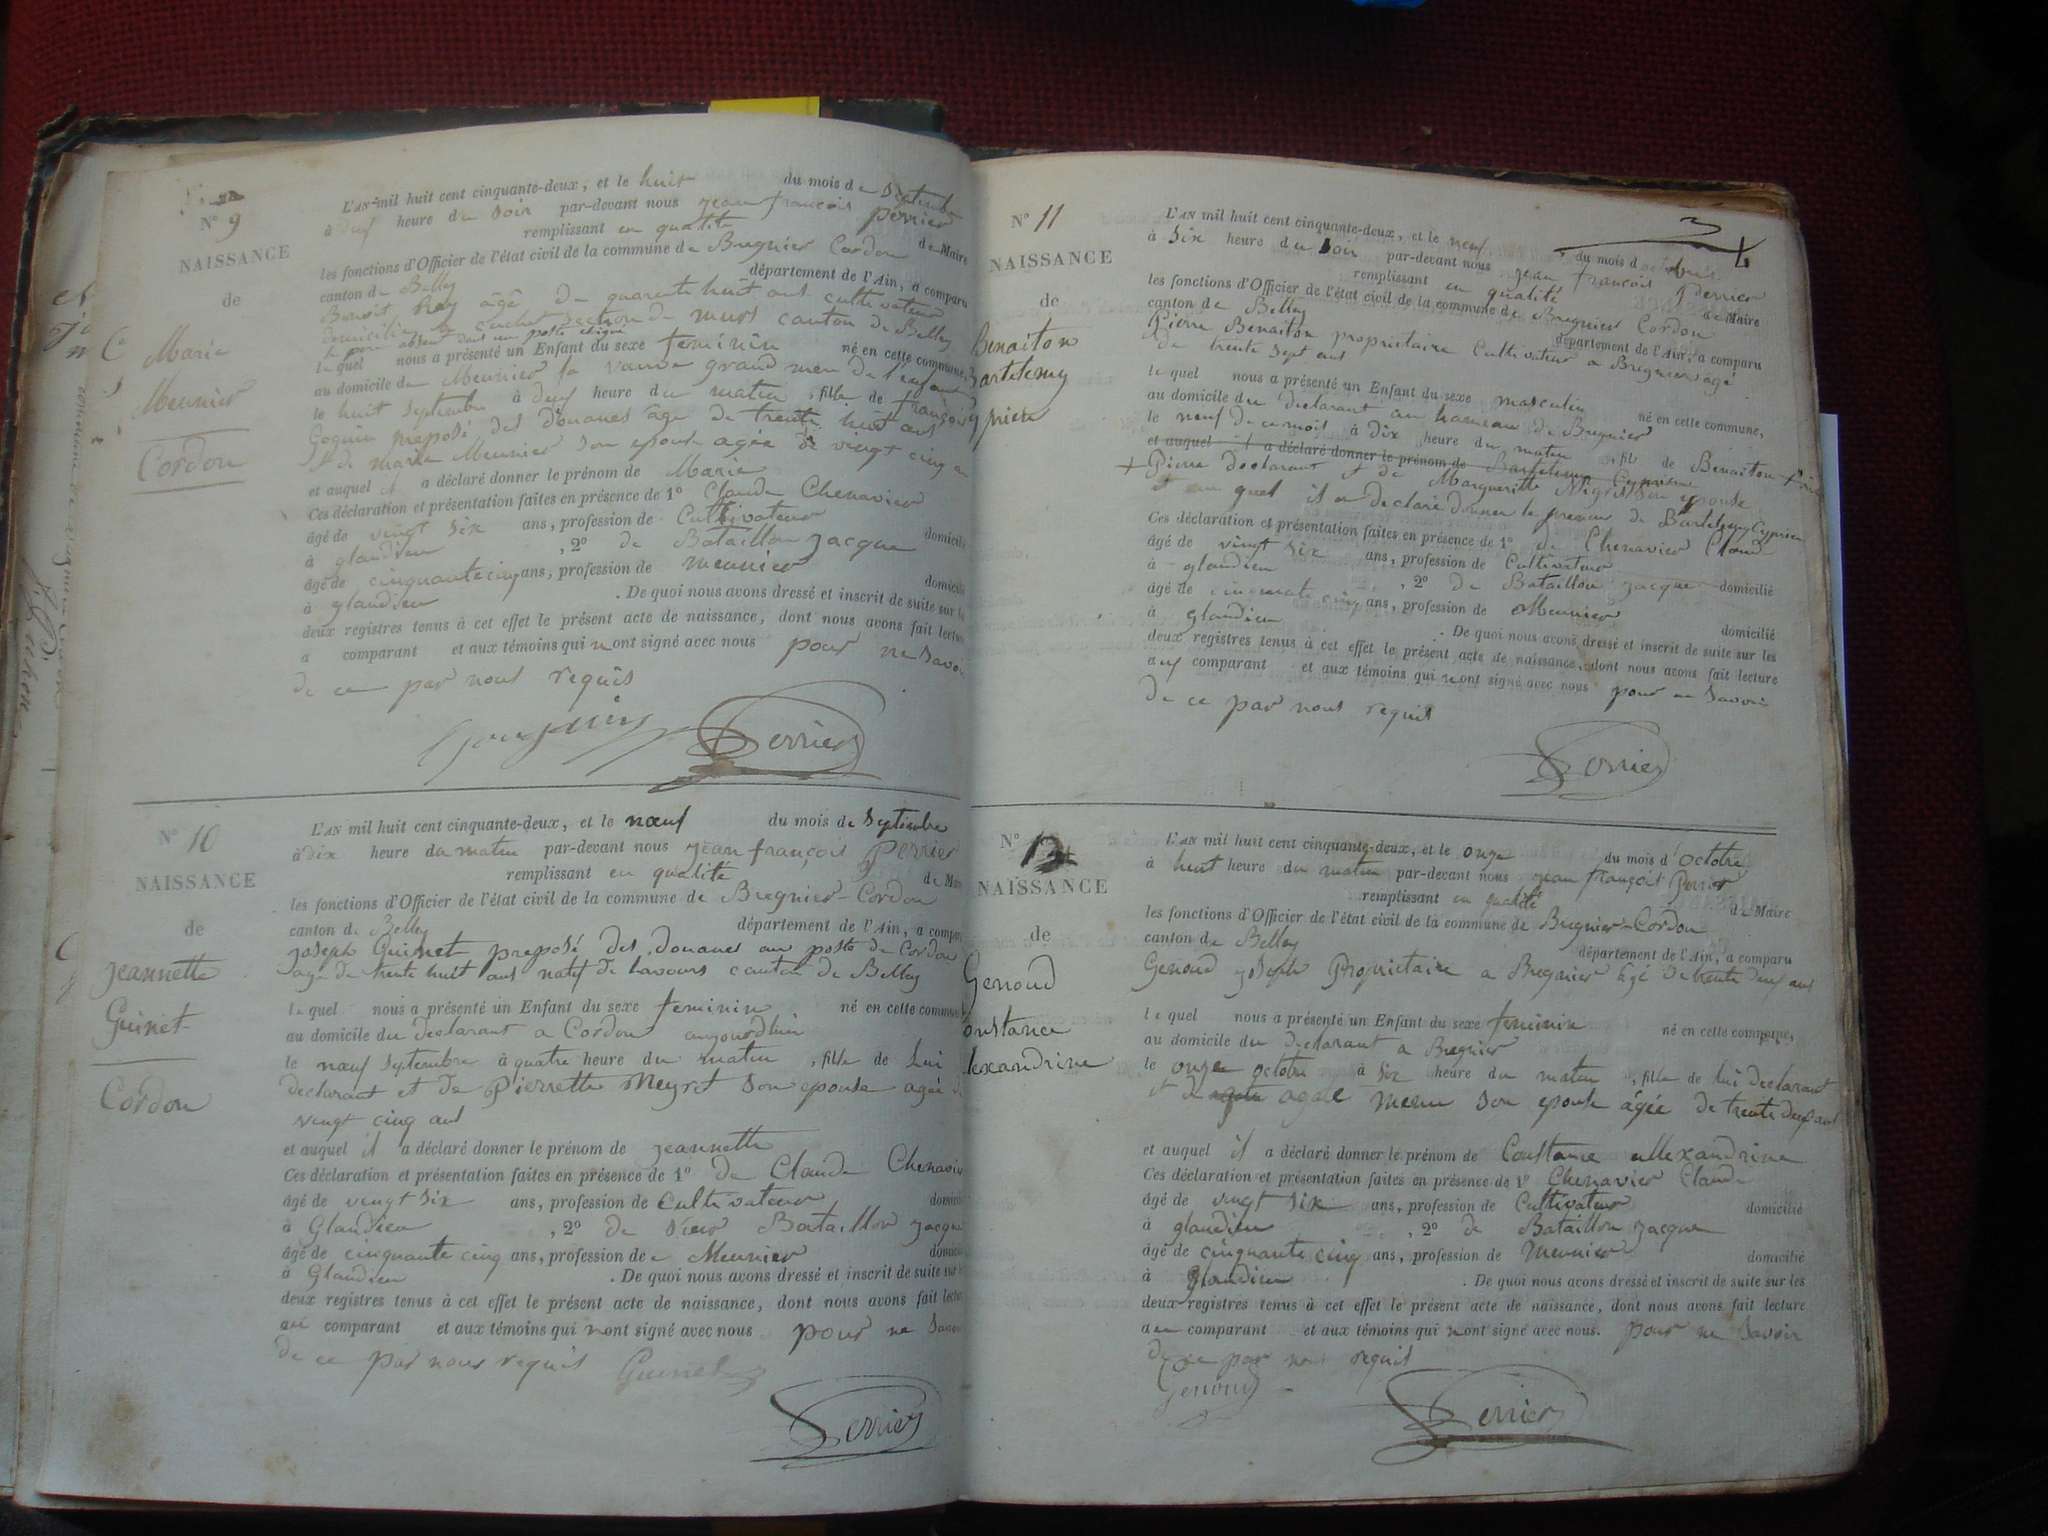 N° 9
NAISSANCE
de
Marie
Meunier
Cordon
L'AN mil huit cent cinquante-deux, et le huit du mois de Septembre
à deux heure du Soir par-devant nous jean françois Perrier
remplissant en qualité de Maire
les fonctions d'Officier de l'état civil de la commune de Bregnier Cordon
canton de Belley département de l'Ain, a comparu
Benoit Rey âgé de quarente huit ans cultivateur
domicilié a cuchet Section de murs canton de Belley
le pere absent dans un poste
le quel nous a présenté un Enfant du sexe feminin né en cette commune,
au domicile de Meunier la veuve grand mere de l'enfant
le huit Septembre à deux heure du matin, fille de françois
Goguin preposé des douanes âgé de trente huit ans
et de marie Meunier son epouse agée de vingt cinq
et auquel il a déclaré donner le prénom de Marie
Ces déclaration et présentation faites en présence de 1° Claude Chenavier
âgé de vingt six ans, profession de Cultivateur domicilié
à glandieu, 2° de Bataillon jacque
âgé de cinquante cinq ans, profession de meunier domicilié
à glandieu. De quoi nous avons dressé et inscrit de suite sur les
deux registres tenus à cet effet le présent acte de naissance, dont nous avons fait lecture
a comparant et aux témoins qui nont signé avec nous pour ne Savoir
de ce par nous requis
Perrier
N° 10
NAISSANCE
de
jeannette
Guinet
Cordon
L'AN mil huit cent cinquante-deux, et le nœuf du mois de Septembre
à dix heure du matin par-devant nous jean françois Perrier
remplissant en qualité de Maire
les fonctions d'Officier de l'état civil de la commune de Bregnier-Cordon
canton de Belley département de l'Ain, a comparu
joseph Guinet preposé des douanes au poste de Cordon
age de trente huit ans natif de Lavours canton de Belley
le quel nous a présenté un Enfant du sexe feminin né en cette commune
au domicile du declarant a Cordon aujourdhui
le nœuf Septembre à quatre heure du matin, fille de Lui
declarant et de Pierrette Meyret Son epouse agée de
vingt cinq ans
et auquel il a déclaré donner le prénom de jeannette
Ces déclaration et présentation faites en présence de 1° de Claude Chenavier
âgé de vingt six ans, profession de Cultivateur domicilié
à Glandieu, 2° de Sieur Bataillon jacque
âgé de cinquante cinq ans, profession de Meunier domicilié
à Glandieu. De quoi nous avons dressé et inscrit de suite sur les
deux registres tenus à cet effet le présent acte de naissance, dont nous avons fait lecture
au comparant et aux témoins qui nont signé avec nous pour ne Savoir
de ce par nous requis Guinet
Perrier
N° 11
NAISSANCE
de
Benaiton
Bartelemy
L'AN mil huit cent cinquante-deux, et le neuf du mois d octobre
à Six heure du Soir par-devant nous jean françois Perrier
remplissant en qualité de Maire
les fonctions d'Officier de l'état civil de la commune de Bregnier Cordon
canton de Belley département de l'Ain, a comparu
Pierre Benaiton propriétaire Cultivateur a Bregnier âgé
de trente Sept ans
le quel nous a présenté un Enfant du sexe masculin né en cette commune,
au domicile du declarant au hameau de Bregnier
le neuf de ce mois à dix heure du matin, fil de Benaiton
et auquel il a déclaré donner le prénom de Bartelemy Cyprien
+ Pierre declarant et de Marguerite son epouse
et au quel il a declaré donner le prenom de Bartelemy Cyprien
Ces déclaration et présentation faites en présence de 1° de Chenavier Claude
âgé de vingt six ans, profession de Cultivateur
à glandieu, 2° de Bataillon jacque domicilié
âgé de cinquante cinq ans, profession de Meunier
à glandieu domicilié
. De quoi nous avons dressé et inscrit de suite sur les
deux registres tenus à cet effet le présent acte de naissance, dont nous avons fait lecture
aux comparant et aux témoins qui nont signé avec nous pour ne Savoir
de ce par nous requis
Perrier
N° 12
NAISSANCE
de
Genoud
onstance
lexandrine
L'AN mil huit cent cinquante-deux, et le onze du mois d'octobre
à huit heure du matin par-devant nous jean françois Perrier
remplissant en qualité de Maire
les fonctions d'Officier de l'état civil de la commune de Bregnier-Cordon
canton de Belley département de l'Ain, a comparu
Genoud joseph Propriétaire a Bregnier âgé de trente deux ans
le quel nous a présenté un Enfant du sexe feminin né en cette commune,
au domicile du declarant a Bregnier
le onze octobre à Six heure du matin, fille de lui declarant
et de agate son epouse âgée de trente deux ans
et auquel il a déclaré donner le prénom de Constance allexandrine
Ces déclaration et présentation faites en présence de 1° Chenavier Claude
âgé de vingt six ans, profession de Cultivateur domicilié
à glandieu, 2° de Bataillon jacque
âgé de cinquante cinq ans, profession de Meunier domicilié
à glandieu. De quoi nous avons dressé et inscrit de suite sur les
deux registres tenus à cet effet le présent acte de naissance, dont nous avons fait lecture
au comparant et aux témoins qui nont signé avec nous. pour ne Savoir
de ce par nous requis
Genoud
Perrier